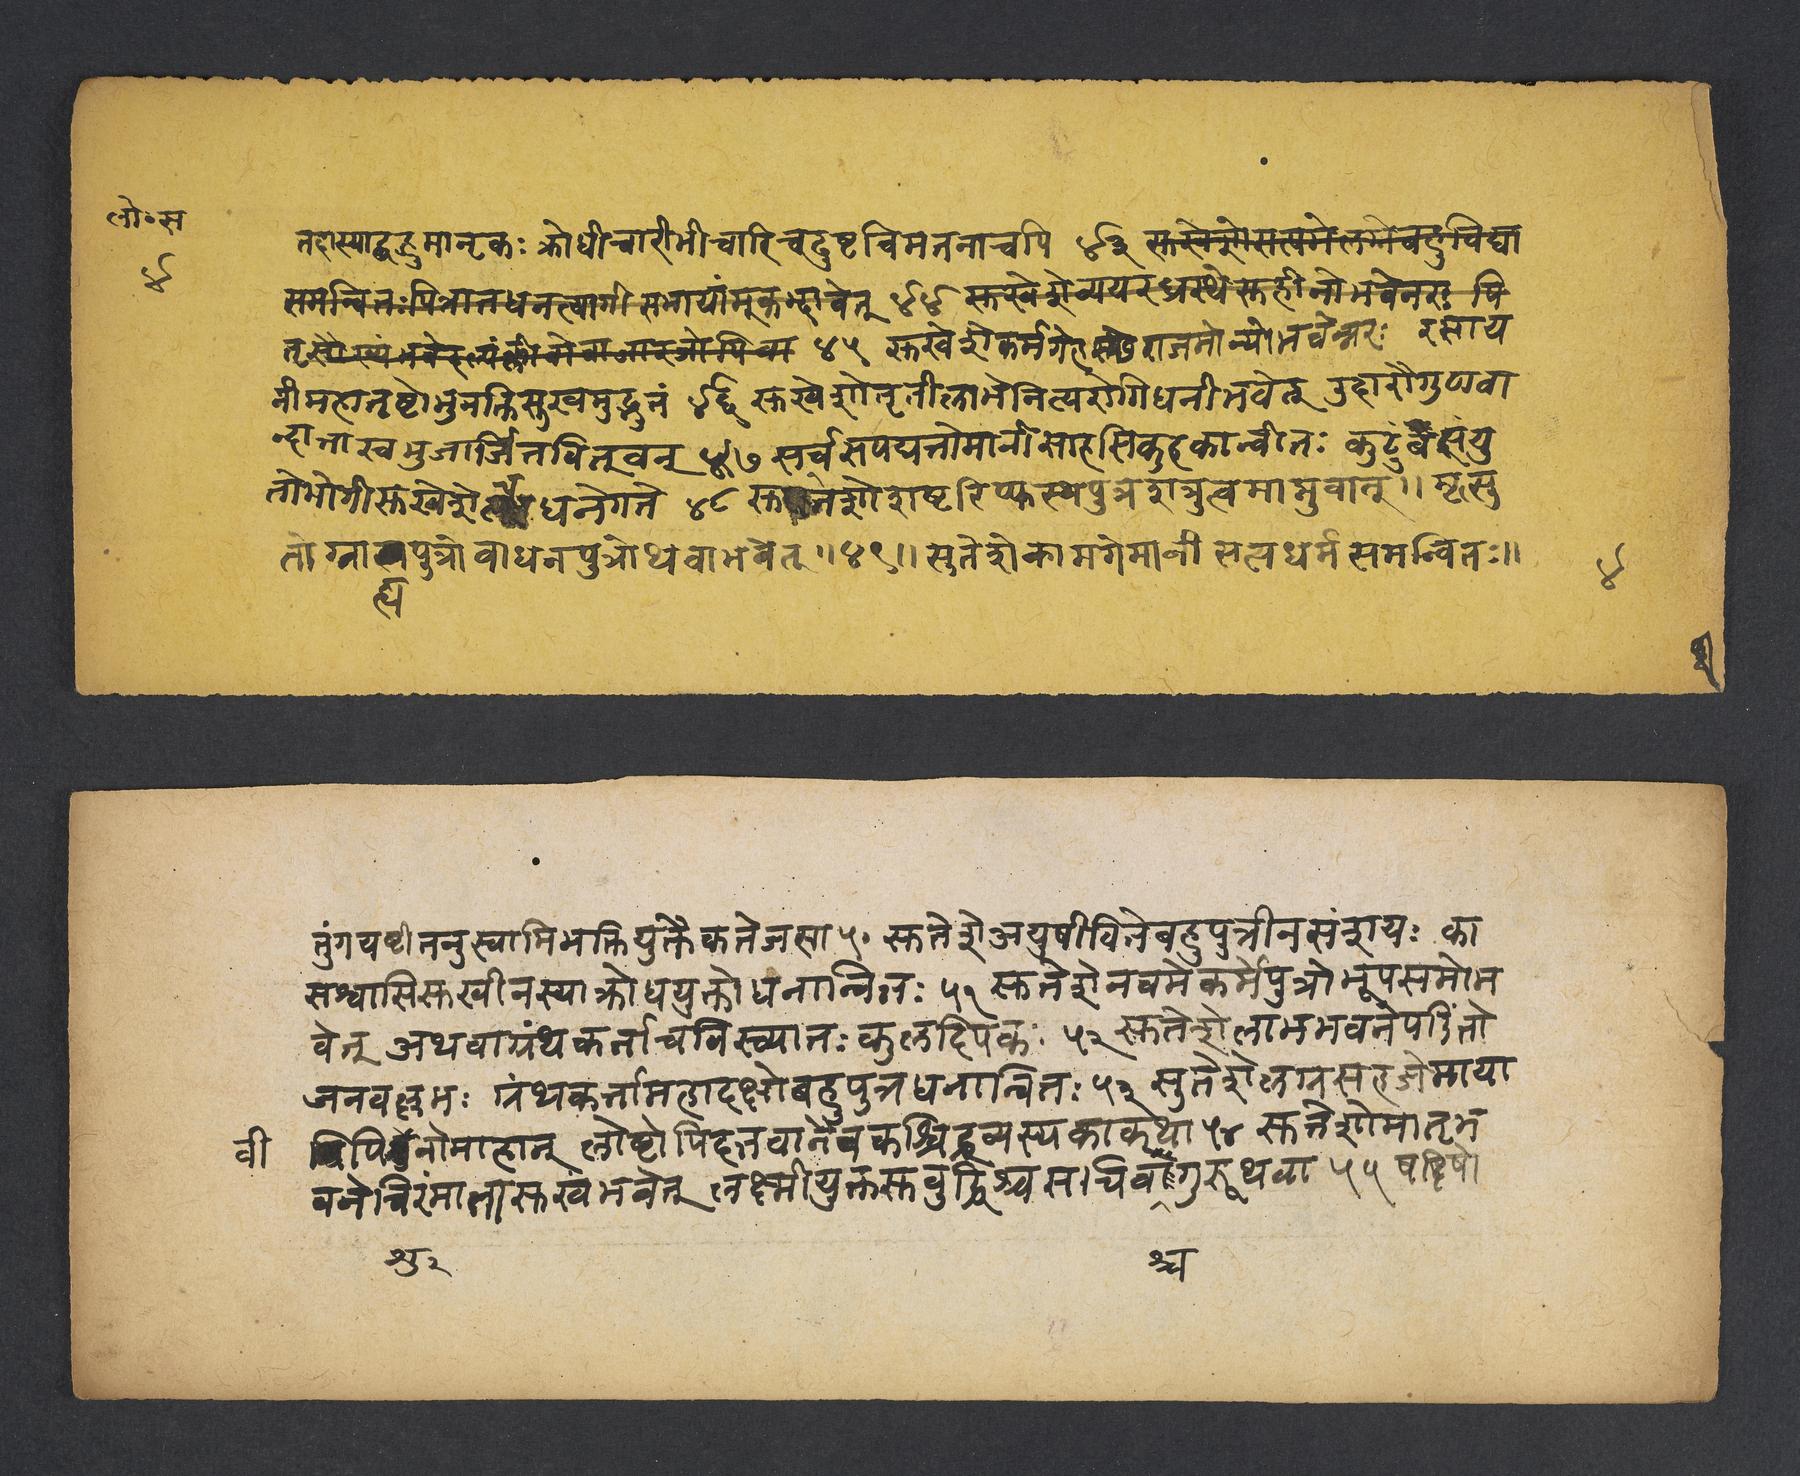 लो॰स
४
तदास्याद्बहुमातृकः क्रोधीचारीभीचारिचदुष्टचिमतनाचपि ४३ स्तखेशेसप्तमेलग्नेबहुविद्या
समन्वितःपित्रातधनत्यागीसभायांमुकभ्द्रावेत् ४४ स्तखेशेव्ययरध्रस्थेस्तहीनोभवेनरः पि
तृसौख्यंभवेदल्पंक्लीवोवाजारजोपिवा ४५ स्तखेशेकर्मगेह राजमोन्योभवेन्नरः रसाय
नीमहातृष्टोभुनक्तिस्तुखमुद्भुतं ४६ स्तखेशेतृतीलाभेनित्यरोगिधनीभवेत् उदारौगुणवा
न्दातास्वभुजार्जितवितवन् ४७ सर्वसपद्यतोमानीसाहसिकुहकान्वीतः कुटुंबैसंयु
तोभोगीस्तखेशे धनेगते ४८ स्त तेशेशष्टरिप्फस्थपुत्रशत्रुत्वमाप्नुवात्॥ मृसु
तोग्नात्मपुत्रोवाधनपुत्रोथवाभवेत्॥४९॥ सुतेशेकामगेमानी सत्यधर्मसमन्वितः॥
४
र्त्थ
तुंगयष्टीतनुस्वामिभक्तियुक्तैकतेजसा ५० स्ततेशेअयुषीवितेबहुपुत्रीनसंशयः का
सश्वासिस्तखीनस्याक्रोधयुक्तोधनान्वितः ५१ स्ततेशेनवमेकर्मेपुत्रोभूपसमोभ
वेत् अथवाग्रंथकर्ताचविख्यातःकुलदिपकः ५२ स्ततेशेलाभभवनेपडिंतो
जनवल्लभः ग्रंथकर्त्तामहादक्षोबहुपुत्रधनान्वितः ५३ सुतेशेलग्नसहजेमाया
वी
विपि नोमाहान् लोष्टोपिदत्तवानैवकश्चिद्द्रव्यस्यकाकथा ५४ स्ततेशेमातृभ
वनेचिरंमातास्तखंभवेत् लक्ष्मीयुक्तस्तवुद्धिश्चसचिवो गुरूथवा ५५ षष्टिषो
शु२
श्च